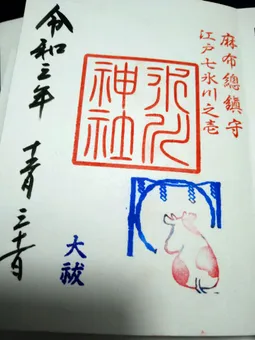 麻布總鎮守
江戸七氷川之壱
氷川
神社
大祓
令和三年
十二月三十一日